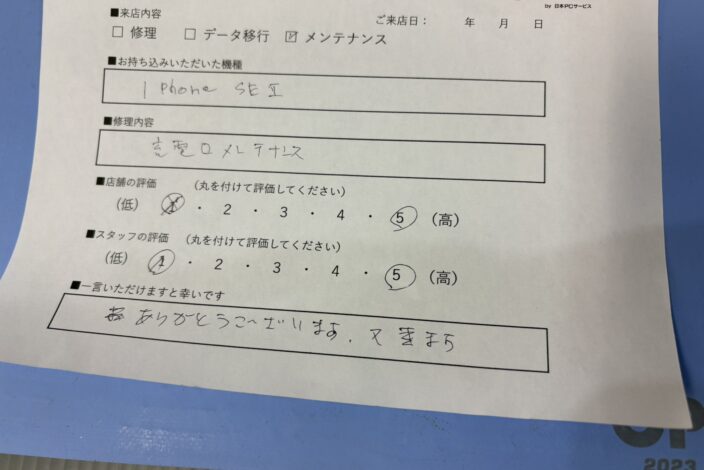 by 日本PCサービス
■来店内容
ご来店日： 年 月 日
□ 修理 □ データ移行 ☑ メンテナンス
■お持ち込みいただいた機種
iPhone SEⅡ
■修理内容
充電口メンテナンス
■店舗の評価 （丸を付けて評価してください）
（低） 1 ・ 2 ・ 3 ・ 4 ・ 5 （高）
■スタッフの評価 （丸を付けて評価してください）
（低） 1 ・ 2 ・ 3 ・ 4 ・ 5 （高）
■一言いただけますと幸いです
ありがとうございます、又きまち
2023